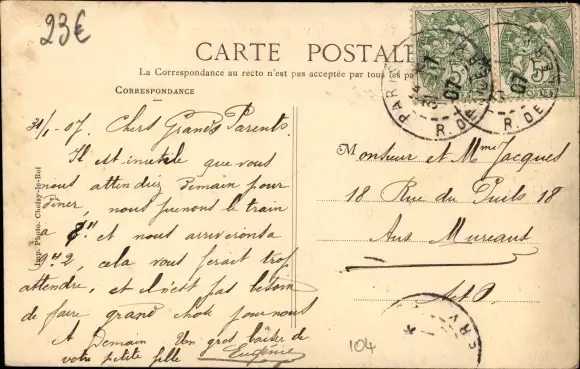 23€
CARTE POSTALE
La Correspondance au recto n'est pas acceptée par tous les pa
CORRESPONDANCE
31/1-07. Chers Grands Parents.
Il est inutile que vous
nous attendiez demain pour
dîner, nous prenons le train
à 7H et nous arriverons à
H2, cela vous ferait trop
attendre, et il n'est pas besoin
de faire grand chose pour nous
A Demain Un gros baiser de
votre petite fille Eugénie
Imp. Photo. Choisy-le-Roi
PARIS
R. DE
07
5
R. DE
07
Monsieur et Mme Jacques
18 Rue du Puits 18
Aux Mureaux
S.et.O.
104